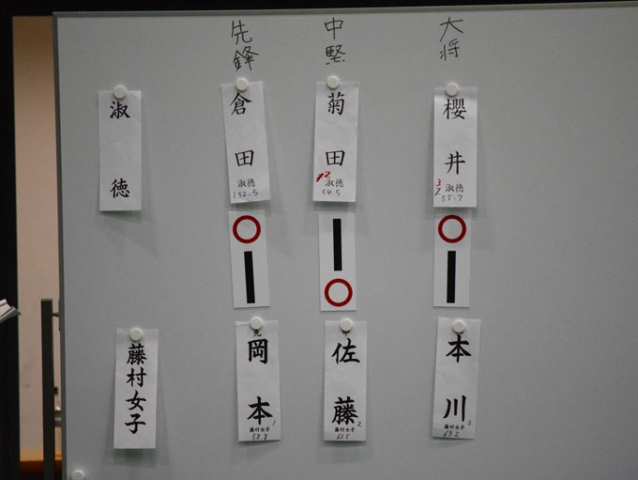 先鋒 中堅 大将
淑徳 倉田 菊田 櫻井
淑徳 淑徳 淑徳
藤村女子 岡本 佐藤 本川
藤村女子 藤村女子 藤村女子